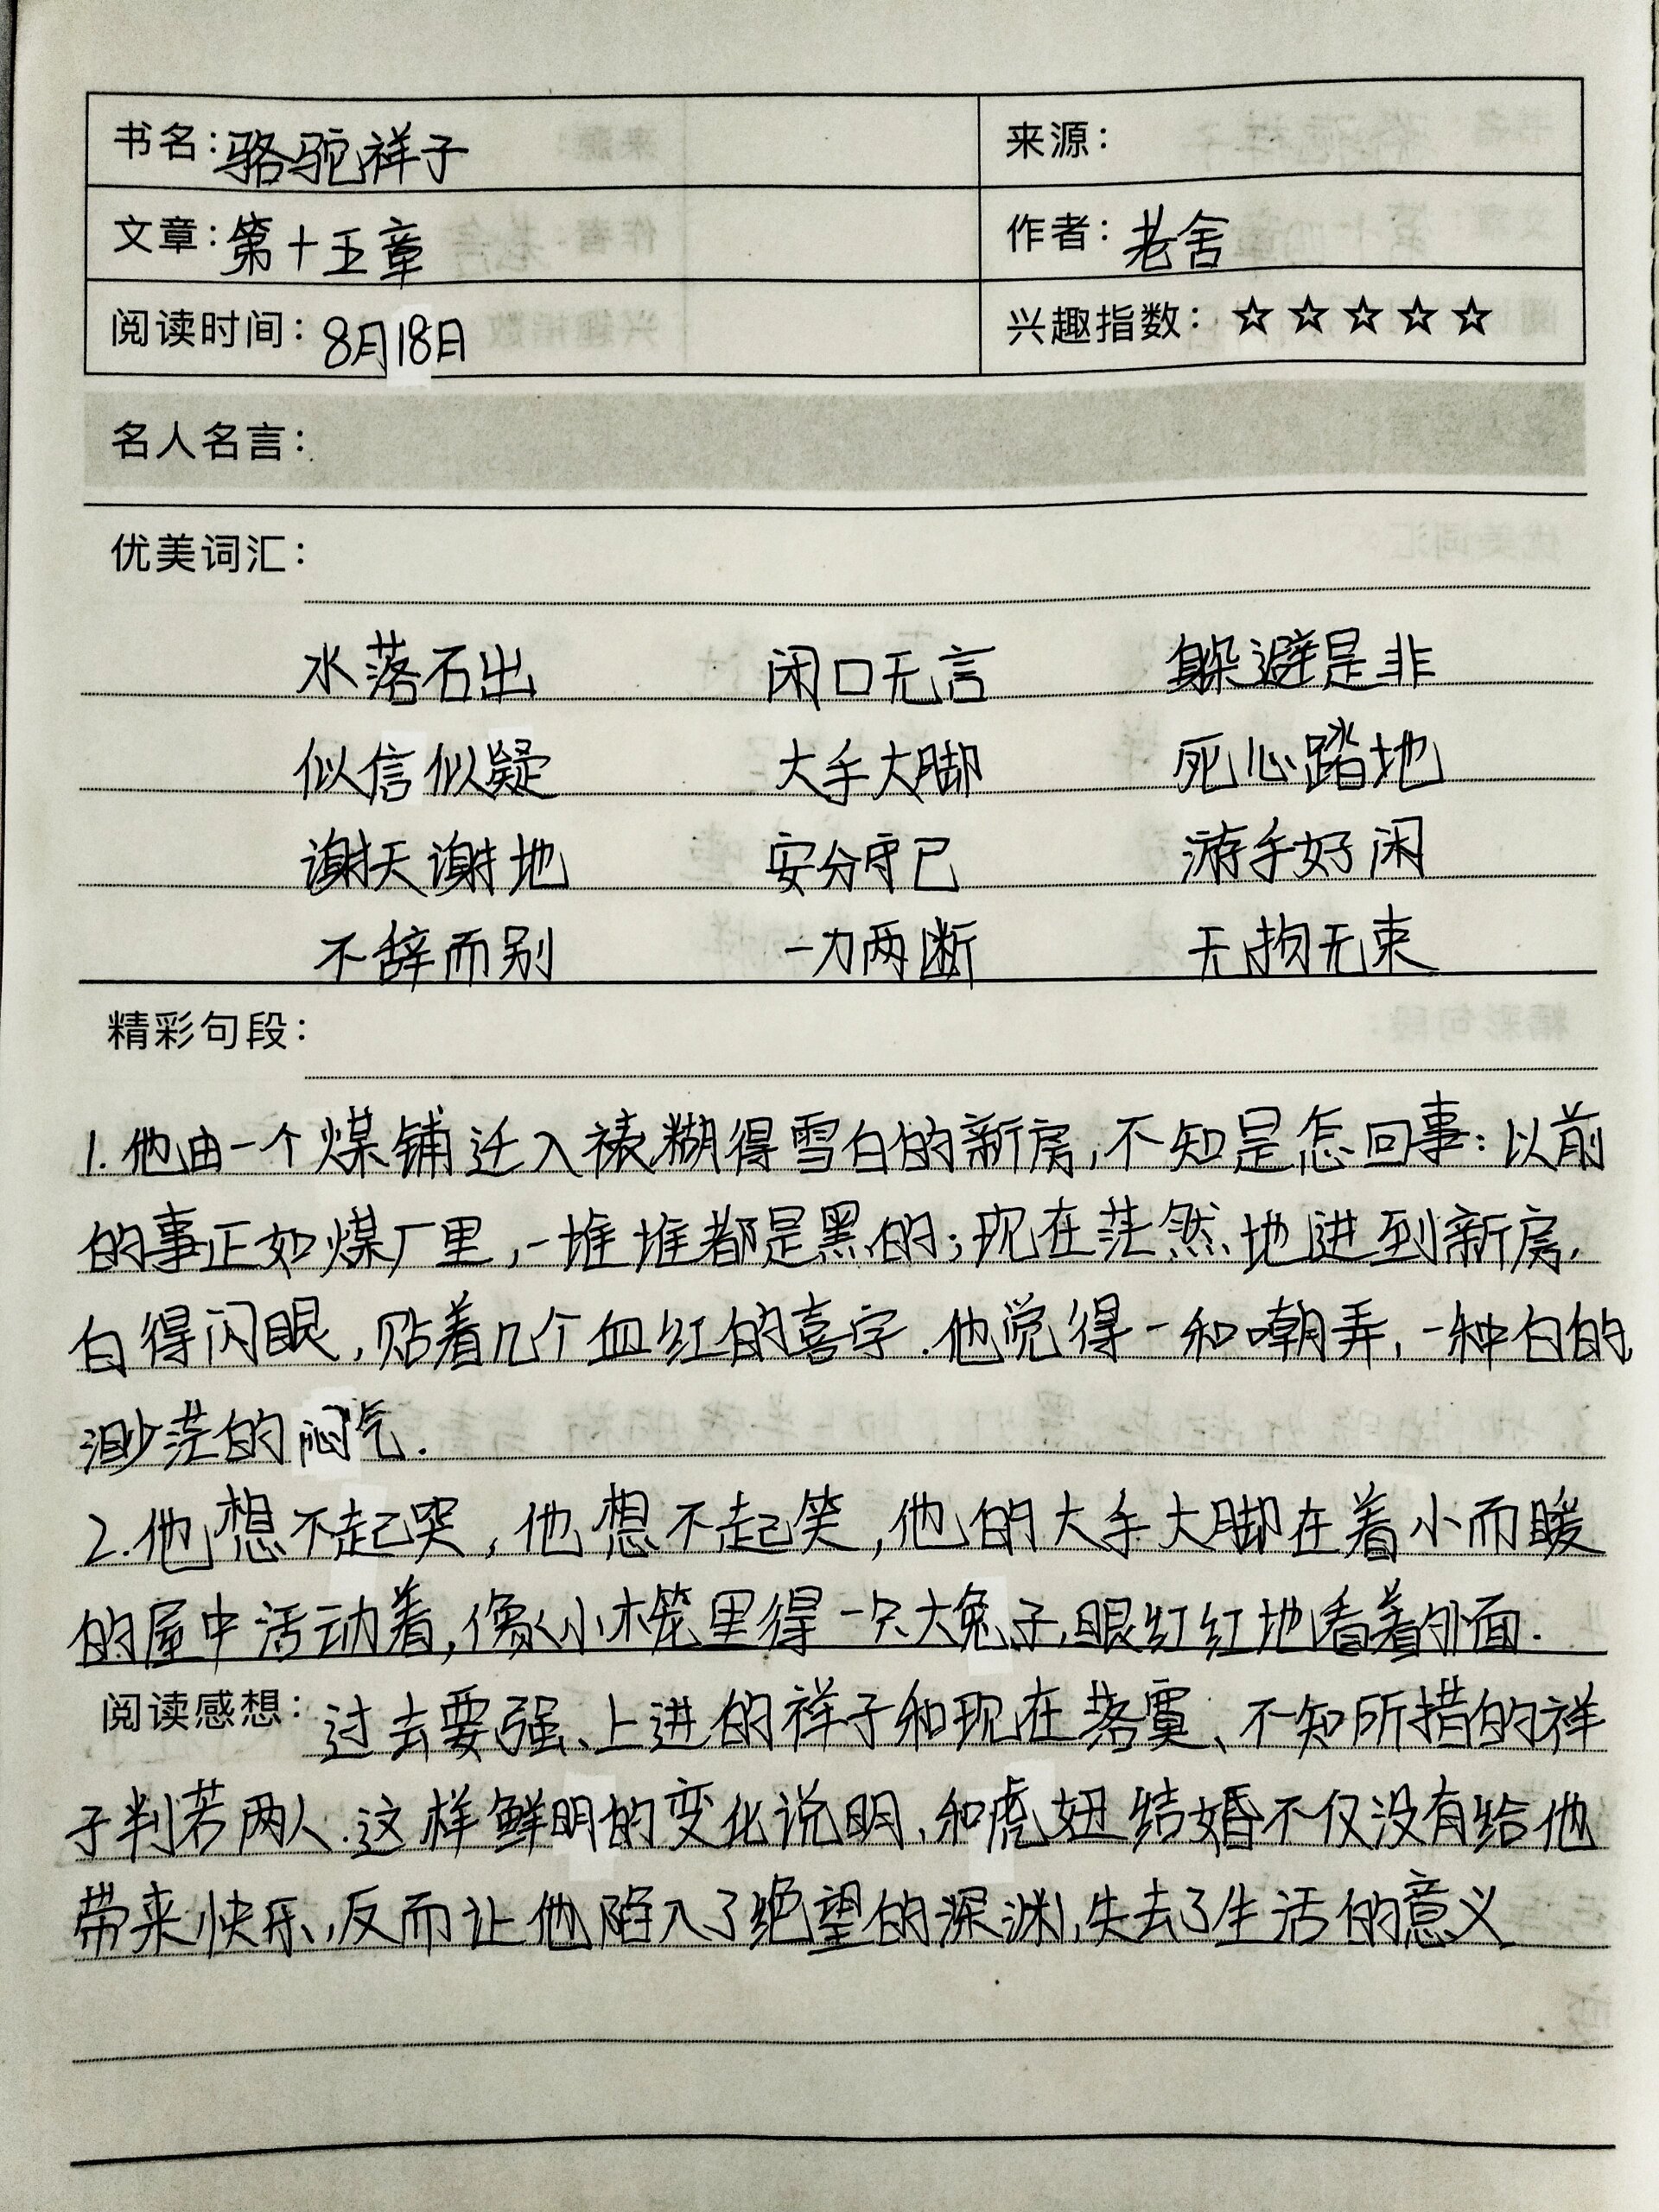 书名：骆驼祥子 来源：
文章：第十五章 作者：老舍
阅读时间：8月18日 兴趣指数：☆☆☆☆☆
名人名言：
优美词汇：
水落石出 闭口无言 躲避是非
似信似疑 大手大脚 死心踏地
谢天谢地 安分守已 游手好闲
不辞而别 一刀两断 无拘无束
精彩句段：
1.他由一个煤铺迁入裱糊得雪白的新房,不知是怎回事：以前
的事正如煤厂里,一堆堆都是黑的;现在茫然地进到新房,
白得闪眼,贴着几个血红的喜字.他觉得一种嘲弄,一种白的
渺茫的闷气.
2.他想不起哭,他想不起笑,他的大手大脚在着小而暖
的屋中活动着,像小木笼里得一只大兔子,眼红红地看着外面.
阅读感想：过去要强、上进的祥子和现在落寞、不知所措的祥
子判若两人.这样鲜明的变化说明,和虎妞结婚不仅没有给他
带来快乐,反而让他陷入了绝望的深渊,失去了生活的意义